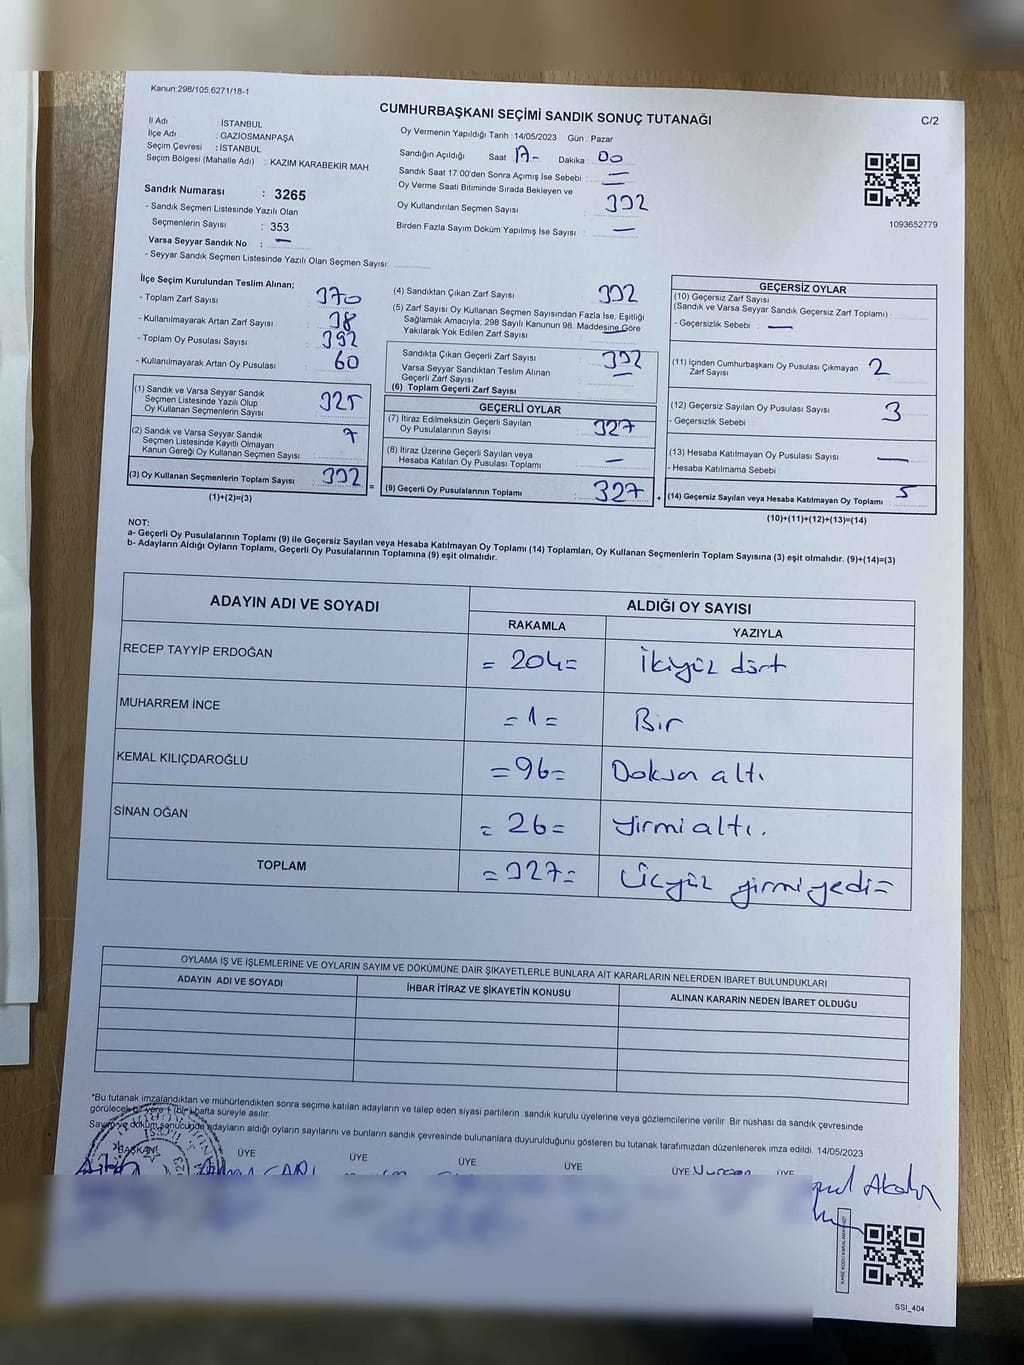 Kanun,298/105,6271/18-1
CUMHURBAŞKANI SEÇİMİ SANDIK SONUÇ TUTANAĞI
C/2
İl Adı : İSTANBUL
İlçe Adı : GAZİOSMANPAŞA
Seçim Çevresi : İSTANBUL
Seçim Bölgesi (Mahalle Adı) : KAZIM KARABEKİR MAH
Sandık Numarası : 3265
- Sandık Seçmen Listesinde Yazılı Olan
Seçmenlerin Sayısı : 353
Varsa Seyyar Sandık No : —
- Seyyar Sandık Seçmen Listesinde Yazılı Olan Seçmen Sayısı:
Oy Vermenin Yapıldığı Tarih :14/05/2023 Gün : Pazar
Sandığın Açıldığı Saat 17- Dakika : 00
Sandık Saat 17:00'den Sonra Açımış İse Sebebi : —
Oy Verme Saati Bitiminde Sırada Bekleyen ve
Oy Kullandırılan Seçmen Sayısı : 332
Birden Fazla Sayım Döküm Yapılmış İse Sayısı : —
1093652779
İlçe Seçim Kurulundan Teslim Alınan;
- Toplam Zarf Sayısı : 370
- Kullanılmayarak Artan Zarf Sayısı : 38
- Toplam Oy Pusulası Sayısı : 392
- Kullanılmayarak Artan Oy Pusulası : 60
(1) Sandık ve Varsa Seyyar Sandık
Seçmen Listesinde Yazılı Olup
Oy Kullanan Seçmenlerin Sayısı : 325
(2) Sandık ve Varsa Seyyar Sandık
Seçmen Listesinde Kayıtlı Olmayan
Kanun Gereği Oy Kullanan Seçmen Sayısı : 7
(3) Oy Kullanan Seçmenlerin Toplam Sayısı : 332
(1)+(2)=(3)
=
(4) Sandıktan Çıkan Zarf Sayısı : 332
(5) Zarf Sayısı Oy Kullanan Seçmen Sayısından Fazla İse, Eşitliği
Sağlamak Amacıyla, 298 Sayılı Kanunun 98. Maddesine Göre
Yakılarak Yok Edilen Zarf Sayısı : —
Sandıkta Çıkan Geçerli Zarf Sayısı : 332
Varsa Seyyar Sandıktan Teslim Alınan
Geçerli Zarf Sayısı : —
(6) Toplam Geçerli Zarf Sayısı
GEÇERLİ OYLAR
(7) İtiraz Edilmeksizin Geçerli Sayılan
Oy Pusulalarının Sayısı : 327
(8) İtiraz Üzerine Geçerli Sayılan veya
Hesaba Katılan Oy Pusulası Toplamı : —
(9) Geçerli Oy Pusulalarının Toplamı : 327
+
GEÇERSİZ OYLAR
(10) Geçersiz Zarf Sayısı
(Sandık ve Varsa Seyyar Sandık Geçersiz Zarf Toplamı) :
- Geçersizlik Sebebi : —
(11) İçinden Cumhurbaşkanı Oy Pusulası Çıkmayan
Zarf Sayısı : 2
(12) Geçersiz Sayılan Oy Pusulası Sayısı : 3
- Geçersizlik Sebebi
(13) Hesaba Katılmayan Oy Pusulası Sayısı : —
- Hesaba Katılmama Sebebi
(14) Geçersiz Sayılan veya Hesaba Katılmayan Oy Toplamı : 5
(10)+(11)+(12)+(13)=(14)
NOT:
a- Geçerli Oy Pusulalarının Toplamı (9) ile Geçersiz Sayılan veya Hesaba Katılmayan Oy Toplamı (14) Toplamları, Oy Kullanan Seçmenlerin Toplam Sayısına (3) eşit olmalıdır. (9)+(14)=(3)
b- Adayların Aldığı Oyların Toplamı, Geçerli Oy Pusulalarının Toplamına (9) eşit olmalıdır.
ADAYIN ADI VE SOYADI ALDIĞI OY SAYISI
RAKAMLA YAZIYLA
RECEP TAYYİP ERDOĞAN = 204= İkiyüz dört
MUHARREM İNCE =1= Bir
KEMAL KILIÇDAROĞLU =96= Doksan altı
SİNAN OĞAN = 26= yirmi altı.
TOPLAM =327= Üçyüz yirmi yedi=
OYLAMA İŞ VE İŞLEMLERİNE VE OYLARIN SAYIM VE DÖKÜMÜNE DAİR ŞİKAYETLERLE BUNLARA AİT KARARLARIN NELERDEN İBARET BULUNDUKLARI
ADAYIN ADI VE SOYADI İHBAR İTİRAZ VE ŞİKAYETİN KONUSU ALINAN KARARIN NEDEN İBARET OLDUĞU
*Bu tutanak imzalandıktan ve mühürlendikten sonra seçime katılan adayların ve talep eden siyasi partilerin sandık kurulu üyelerine veya gözlemcilerine verilir. Bir nüshası da sandık çevresinde
görülecek bir yere 1 (bir) hafta süreyle asılır.
Sayım ve döküm sonucunda adayların aldığı oyların sayılarını ve bunların sandık çevresinde bulunanlara duyurulduğunu gösteren bu tutanak tarafımızdan düzenlenerek imza edildi. 14/05/2023
BAŞKAN ÜYE ÜYE ÜYE ÜYE ÜYE ÜYE
SSI_404